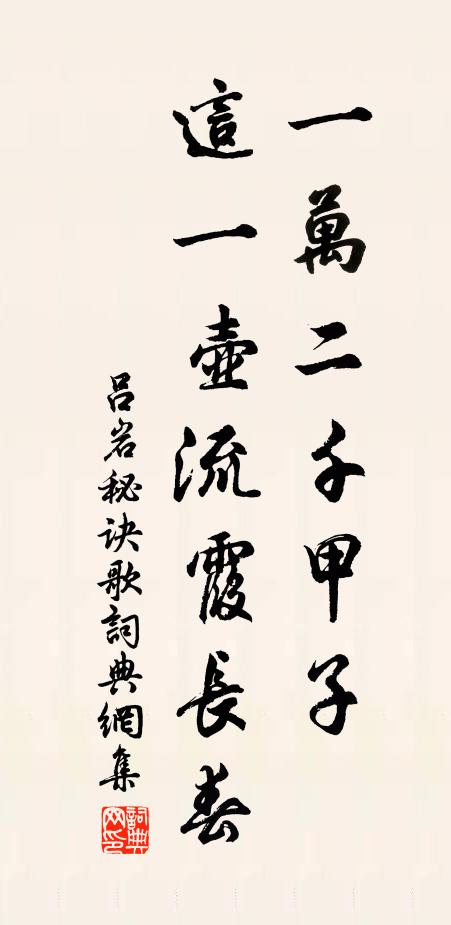 一萬二千甲子
這一壺流霞長春
呂岩秘訣歌詞典網集
詞典網印